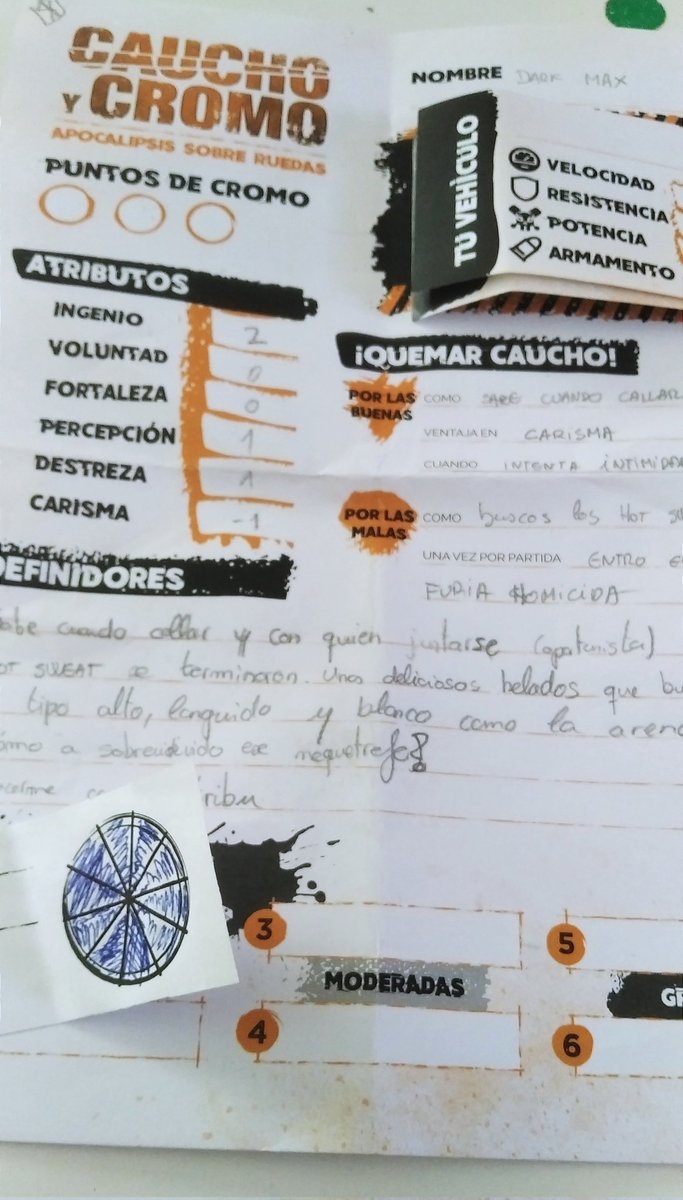 CAUCHO
Y CROMO
APOCALIPSIS SOBRE RUEDAS
PUNTOS DE CROMO
ATRIBUTOS
INGENIO 2
VOLUNTAD 0
FORTALEZA 0
PERCEPCIÓN 1
DESTREZA 1
CARISMA -1
NOMBRE DARK MAX
TU VEHÍCULO
VELOCIDAD
RESISTENCIA
POTENCIA
ARMAMENTO
¡QUEMAR CAUCHO!
POR LAS BUENAS
COMO SABE CUANDO CALLAR
VENTAJA EN CARISMA
CUANDO INTENTA INTIMIDA
POR LAS MALAS
COMO buscos los HOT
UNA VEZ POR PARTIDA ENTRO
FURIA HOMICIDA
DEFINIDORES
cuando callar y con quien juntarse (oportunista)
SWEAT se terminaron. Unos deliciosos helados que
tipo alto, languido y blanco como la
a sobrevivido ese mequetrefe?
3
MODERADAS
4
5
6